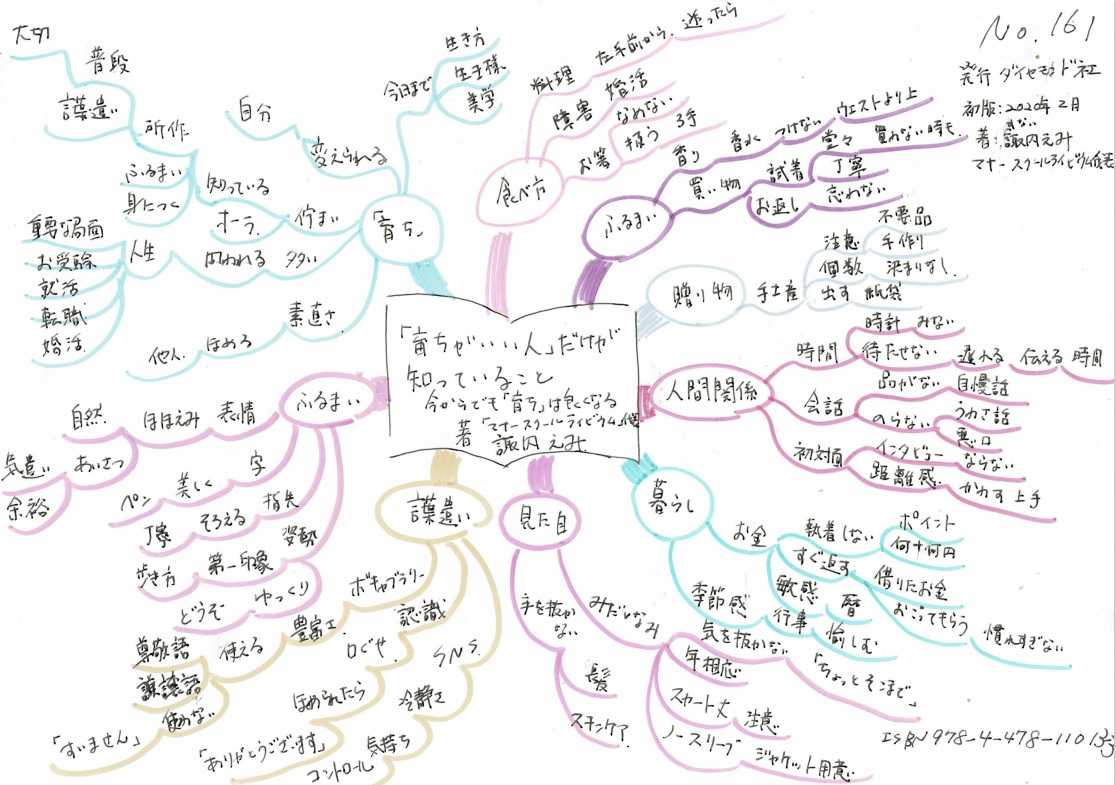 No. 161
発行 ダイヤモンド社
初版:2020年2月
著:諏内えみ
すない
マナースクールライビウム代表
「育ちがいい人」だけが
知っていること
今からでも「育ち」は良くなる
「マナースクールライビウム」代表
著 諏内えみ
「育ち」
今日まで
生き方
生き様
美学
変えられる
自分
知っている
所作
ふるまい
身につく
言葉遣い
普段
大切
佇まい
オーラ
多い
問われる
人生
重要な局面
お受験
就活
転職
婚活
素直さ
ほめる
他人
食べ方
料理
左手前から
迷ったら
障害
婚活
お箸
なめない
扱う
3手
ふるまい
香り
香水
つけない
ウエストより上
買い物
試着
堂々
買わない時も
丁寧
お返し
忘れない
贈り物
手土産
注意
不要品
手作り
個数
決まりなし
出す
紙袋
人間関係
時間
時計
みない
待たせない
遅れる
伝える
時間
会話
品がない
自慢話
のらない
うわさ話
悪口
初対面
インタビュー
ならない
距離感
かわす
上手
暮らし
お金
執着しない
ポイント
何十何円
すぐ返す
借りたお金
おごってもらう
慣れすぎない
敏感
暦
季節感
行事
愉しむ
見た目
手を抜かない
髪
スキンケア
みだしなみ
気を抜かない
「ちょっとそこまで」
年相応
スカート丈
注意
ノースリーブ
ジャケット用意
言葉遣い
ボキャブラリー
豊富さ
使える
尊敬語
謙譲語
使わない
「すいません」
認識
口ぐせ
ほめられたら
「ありがとうございます」
SNS
冷静さ
気持ち
コントロール
ふるまい
表情
ほほえみ
自然
あいさつ
気遣い
余裕
字
美しく
ペン
指先
そろえる
丁寧
姿勢
第一印象
歩き方
ゆっくり
どうぞ